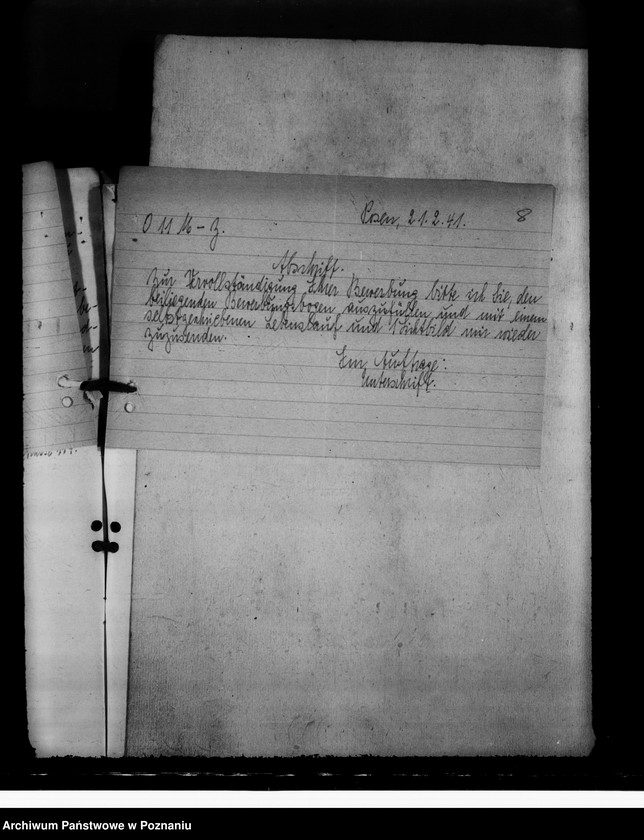 O 11 M - Z.
Posen, 21.2.41.
8
Abschrift.
Zur Vervollständigung Ihrer Bewerbung bitte ich Sie, den
beiliegenden Bewerbungsbogen auszufüllen und mit einem
selbstgeschriebenen Lebenslauf und 1 Lichtbild mir wieder
zuzusenden.
Im Auftrage:
Unterschrift.
Archiwum Państwowe w Poznaniu